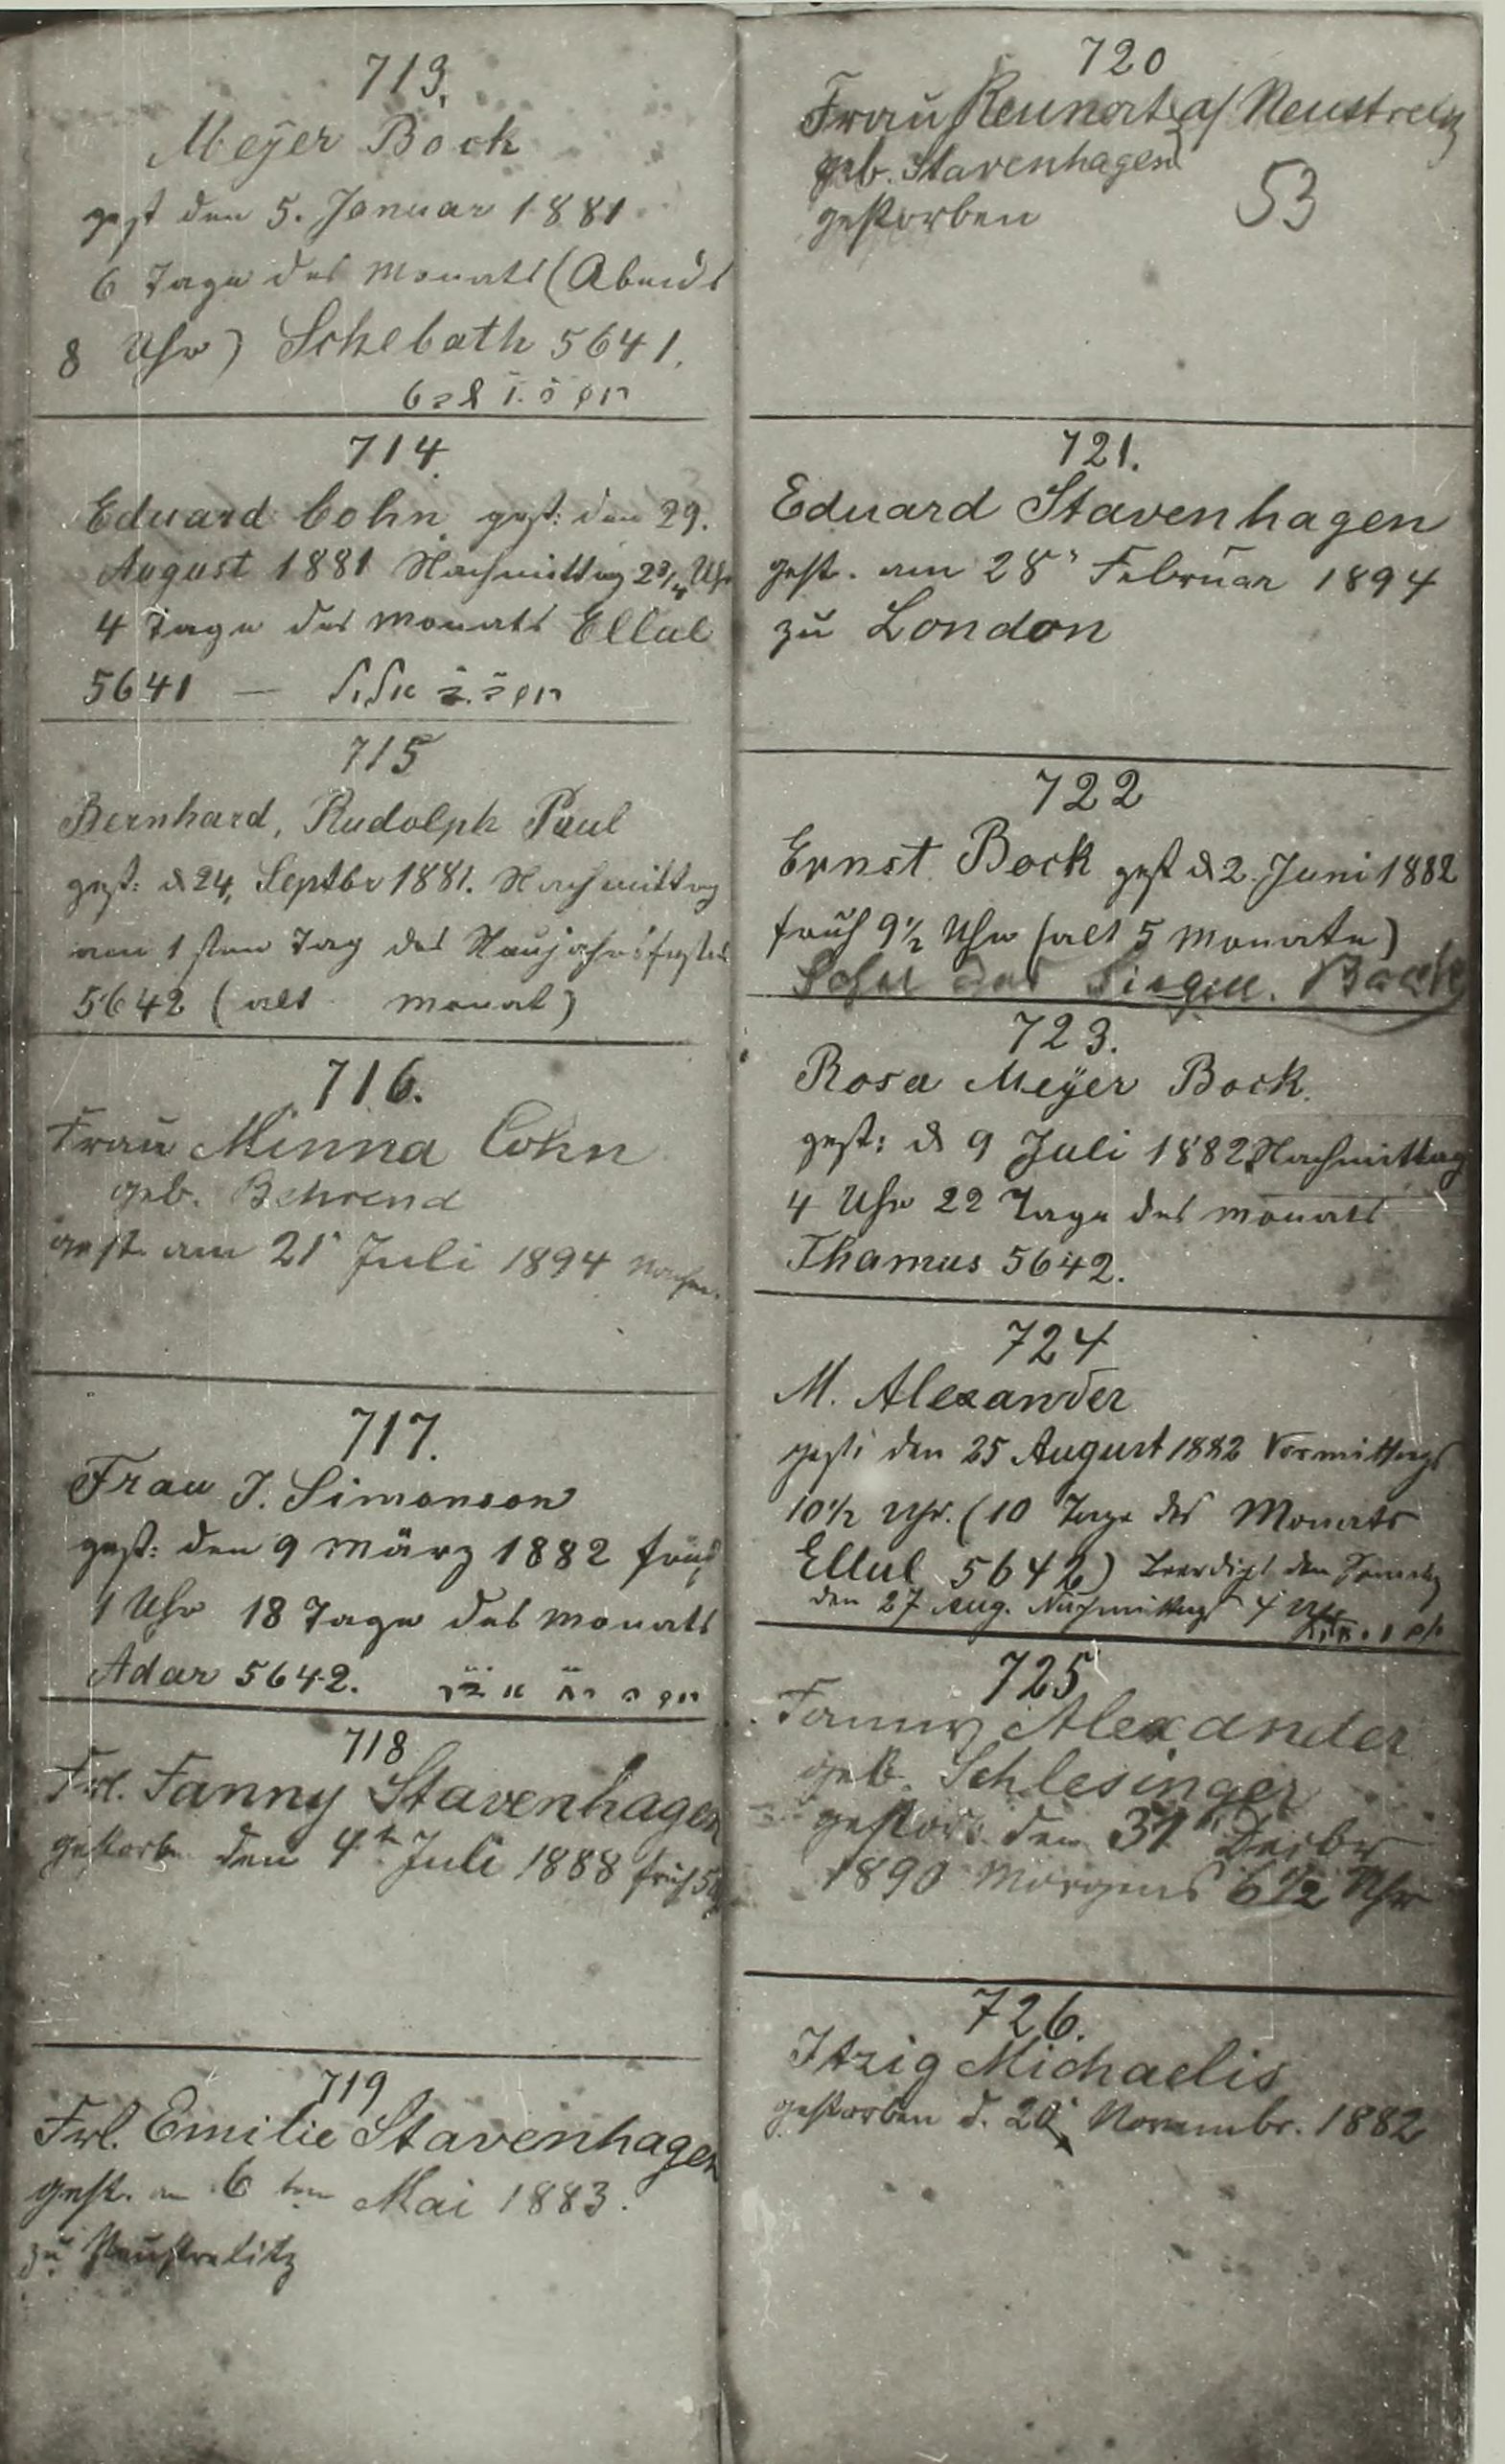 713.
Meÿer Bock
gest den 5. Januar 1881
6 Tage des Monats (Abends
8 Uhr) Schebath 5641.
714.
Eduard Cohn gest: den 29.
August 1881 Nachmittag 2 3/4 Uhr
4 Tage des Monats Ellul
5641 —
715
Bernhard, Rudolph Paul
gest: d 24, Septbr 1881. Nachmittag
am 1 sten Tag des Neujahrsfestes
5642 (alt Monat)
716.
Frau Minna Cohn
geb. Behrend
gest. am 21 Juli 1894 Nachm.
717.
Frau J. Simonson
gest: den 9 März 1882 früh
1 Uhr 18 Tage des Monats
Adar 5642.
718
Frl. Fanny Stavenhagen
gestorben den 4t Juli 1888 früh 5
719
Frl. Emilie Stavenhagen
gest. am 6 ten Mai 1883.
zu Neustrelitz
720
Frau a/ Neustrelitz
geb. Stavenhagen
gestorben 53
721.
Eduard Stavenhagen
gest. am 28 Februar 1894
zu London
722
Ernst Bock gest d 2. Juni 1882
früh 9 1/2 Uhr (alt 5 Monate)
Sohn des Bock
723.
Rosa Meÿer Bock.
gest: d 9 Juli 1882 Nachmittag
4 Uhr 22 Tage des Monats
Thamus 5642.
724
M. Alexander
gest: den 25 August 1882 Vormittags
10 1/2 Uhr. (10 Tage des Monats
Ellul 5642) beerdigt den Sonntag
den 27 Aug. Nachmittags 4 Uhr
725
Fanny Alexander
geb. Schlesinger
gestorb. den 31 Decbr
1890 Morgens 6 1/2 Uhr
726.
Itzig Michaelis
gestorben d. 20 Novembr. 1882